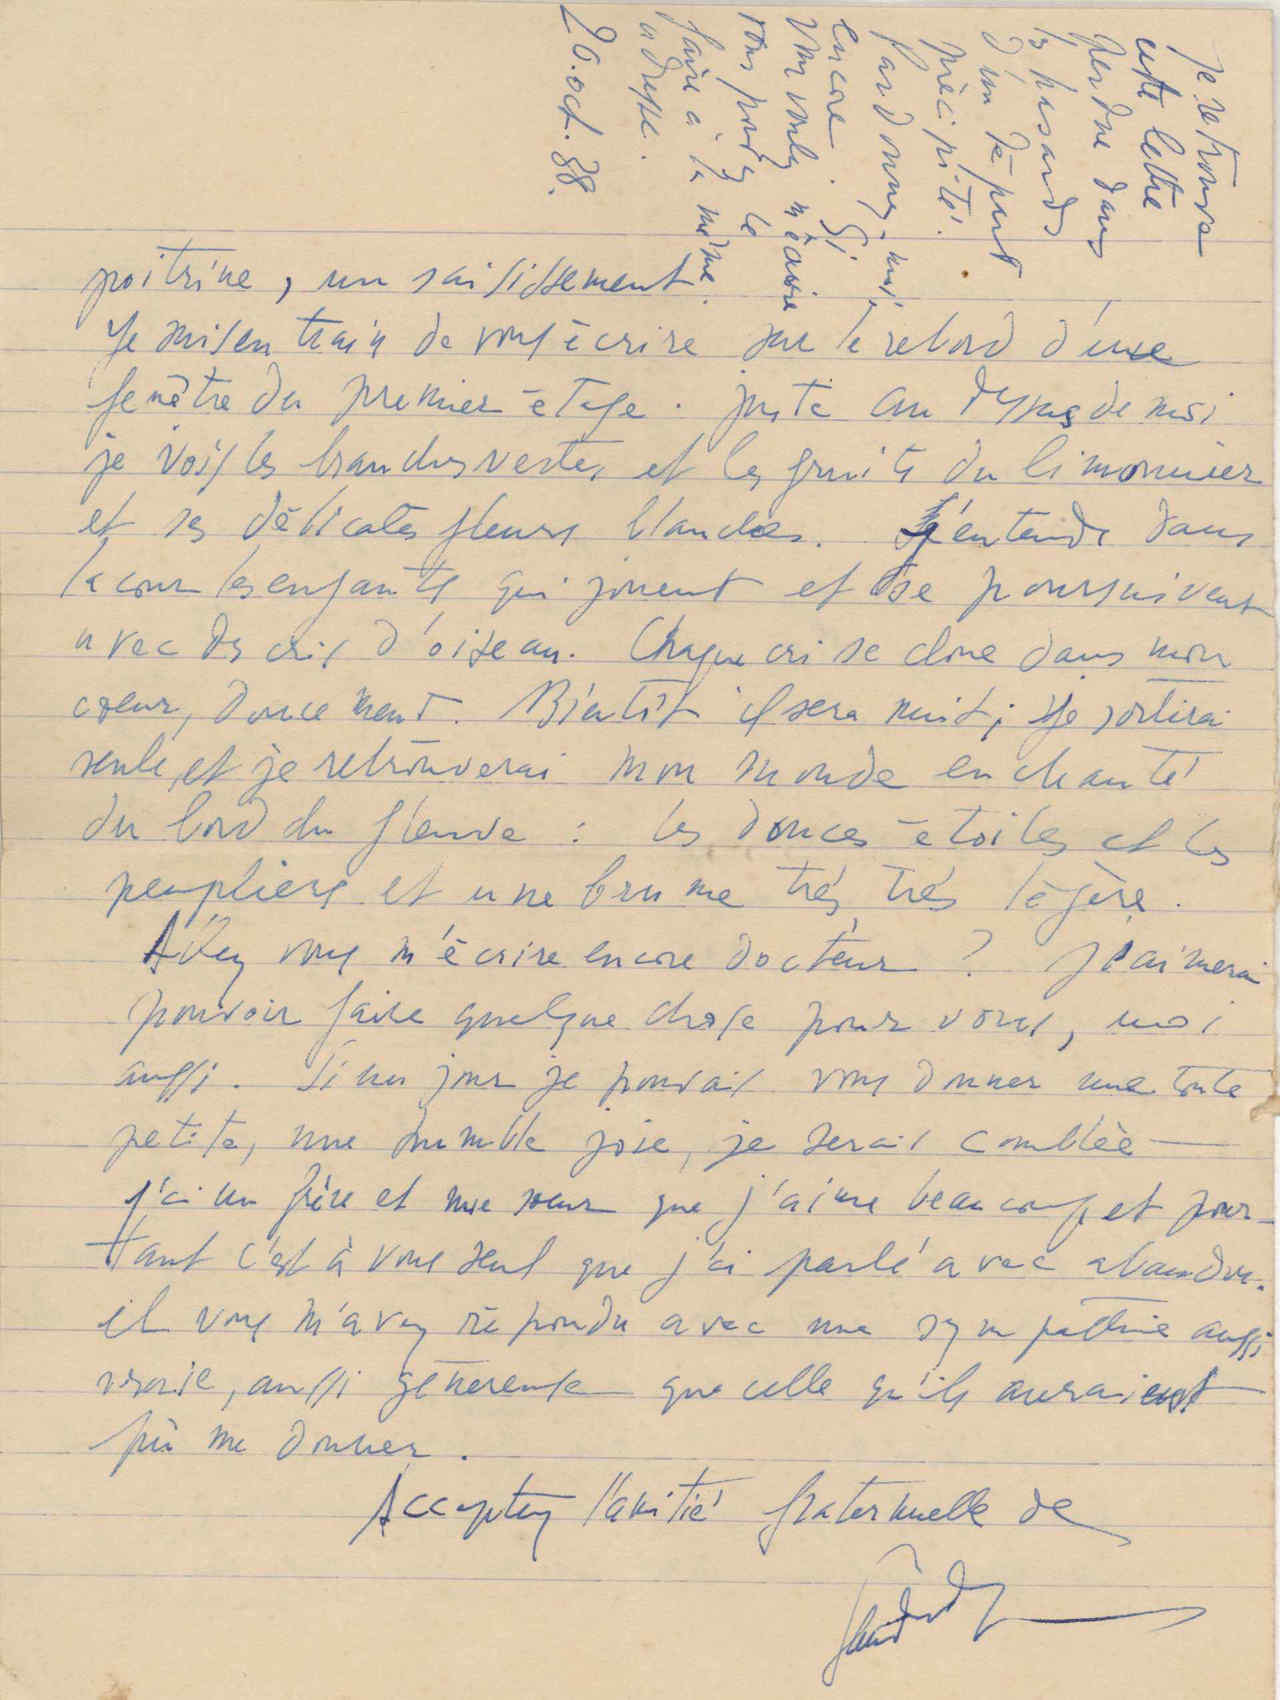 Je retrouve
cette lettre
perdue dans
les hasards
d'un départ
précipité.
Pardonnez-moi
encore. Si
vous voulez m'écrire
vous pouvez le
faire à la même
adresse.
20.oct.38.
poitrine, un saisissement.
Je suis en train de vous écrire sur le rebord d'une
fenêtre du premier étage. juste au dessus de moi
je vois les branches vertes et les fruits du limonnier
et ses délicates fleurs blanches. J'entends dans
la cour les enfants qui jouent et se poursuivent
avec des cris d'oiseau. Chaque cri se cloue dans mon
cœur, doucement. Bientôt il sera nuit; je sortirai
seule, et je retrouverai mon monde enchanté
du bord du fleuve : les douces étoiles et les
peupliers et une brume très, très légère.
Allez vous m'écrire encore docteur ? J'aimerai
pouvoir faire quelque chose pour vous, moi
aussi. Si un jour je pouvais vous donner une toute
petite, une humble joie, je serais comblée —
j'ai un frère et une sœur que j'aime beaucoup et pour-
tant c'est à vous seul que j'ai parlé avec abandon.
et vous m'avez répondu avec une sympathie aussi
vraie, aussi généreuse que celle qu'ils auraient
pû me donner.
Acceptez l'amitié fraternelle de